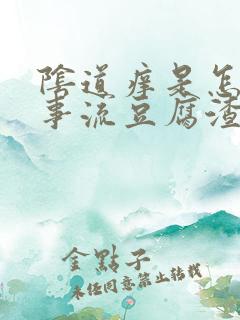 陰道痒是怎
事流豆腐渣
金點子
未經同意禁止轉載